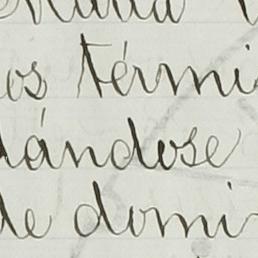 os térmi
dándose
de domi